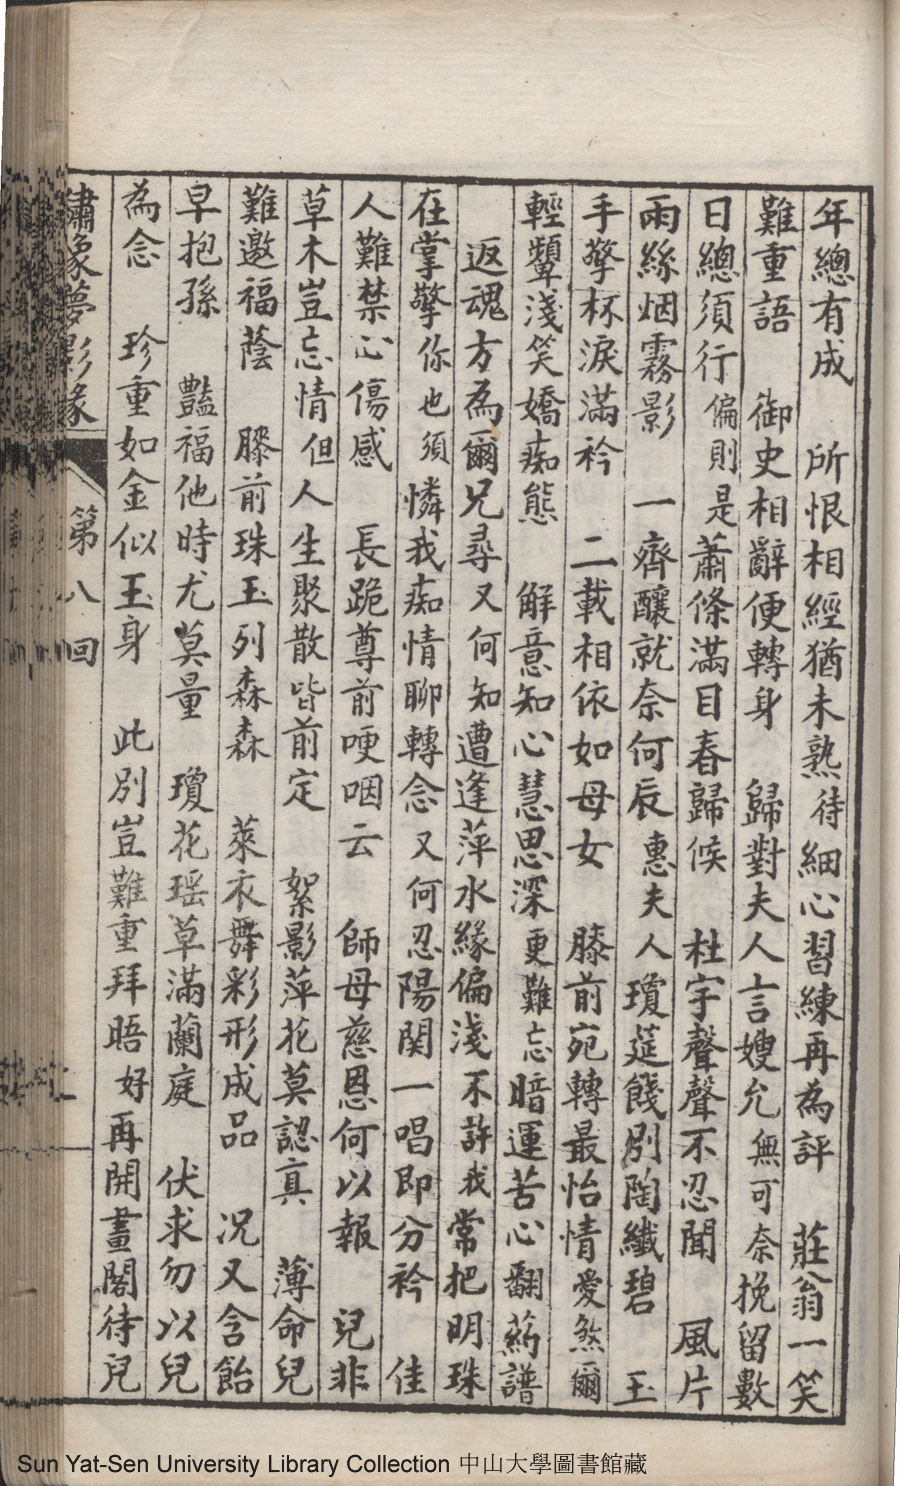 年總有成　所恨相經猶未熟待細心習練再為評　莊翁一笑
難重語　御史相辭便轉身　歸對夫人言嫂允無可奈挽留數
日總須行偏則是蕭條滿目春歸候　杜宇聲聲不忍聞　風片
雨絲烟霧影　一齊釀就奈何辰　惠夫人瓊筵餞別陶纖碧　玉
手擎杯淚滿衿　二載相依如母女　膝前宛轉最怡情愛煞爾
輕顰淺笑嬌痴態　解意知心慧思深更難忘暗運苦心翻葯譜
返魂方為爾兄尋又何知遭逢萍水緣偏淺不許我常把明珠
在掌擎你也須憐我痴情聊轉念又何忍陽関一唱即分衿　佳
人難禁心傷感　長跪尊前哽咽云　師母慈恩何以報　兒非
草木豈忘情但人生聚散皆前定　絮影萍花莫認真　薄命兒
難邀福蔭　膝前珠玉列森森　萊衣舞彩形成品　况又含飴
早抱孫　豔福他時尤莫量　瓊花瑶草滿蘭庭　伏求勿以兒
為念　珍重如金似玉身　此別豈難重拜晤好再開畫閣待兒
繡像夢影緣　第八回
Sun Yat-Sen University Library Collection 中山大學圖書館藏